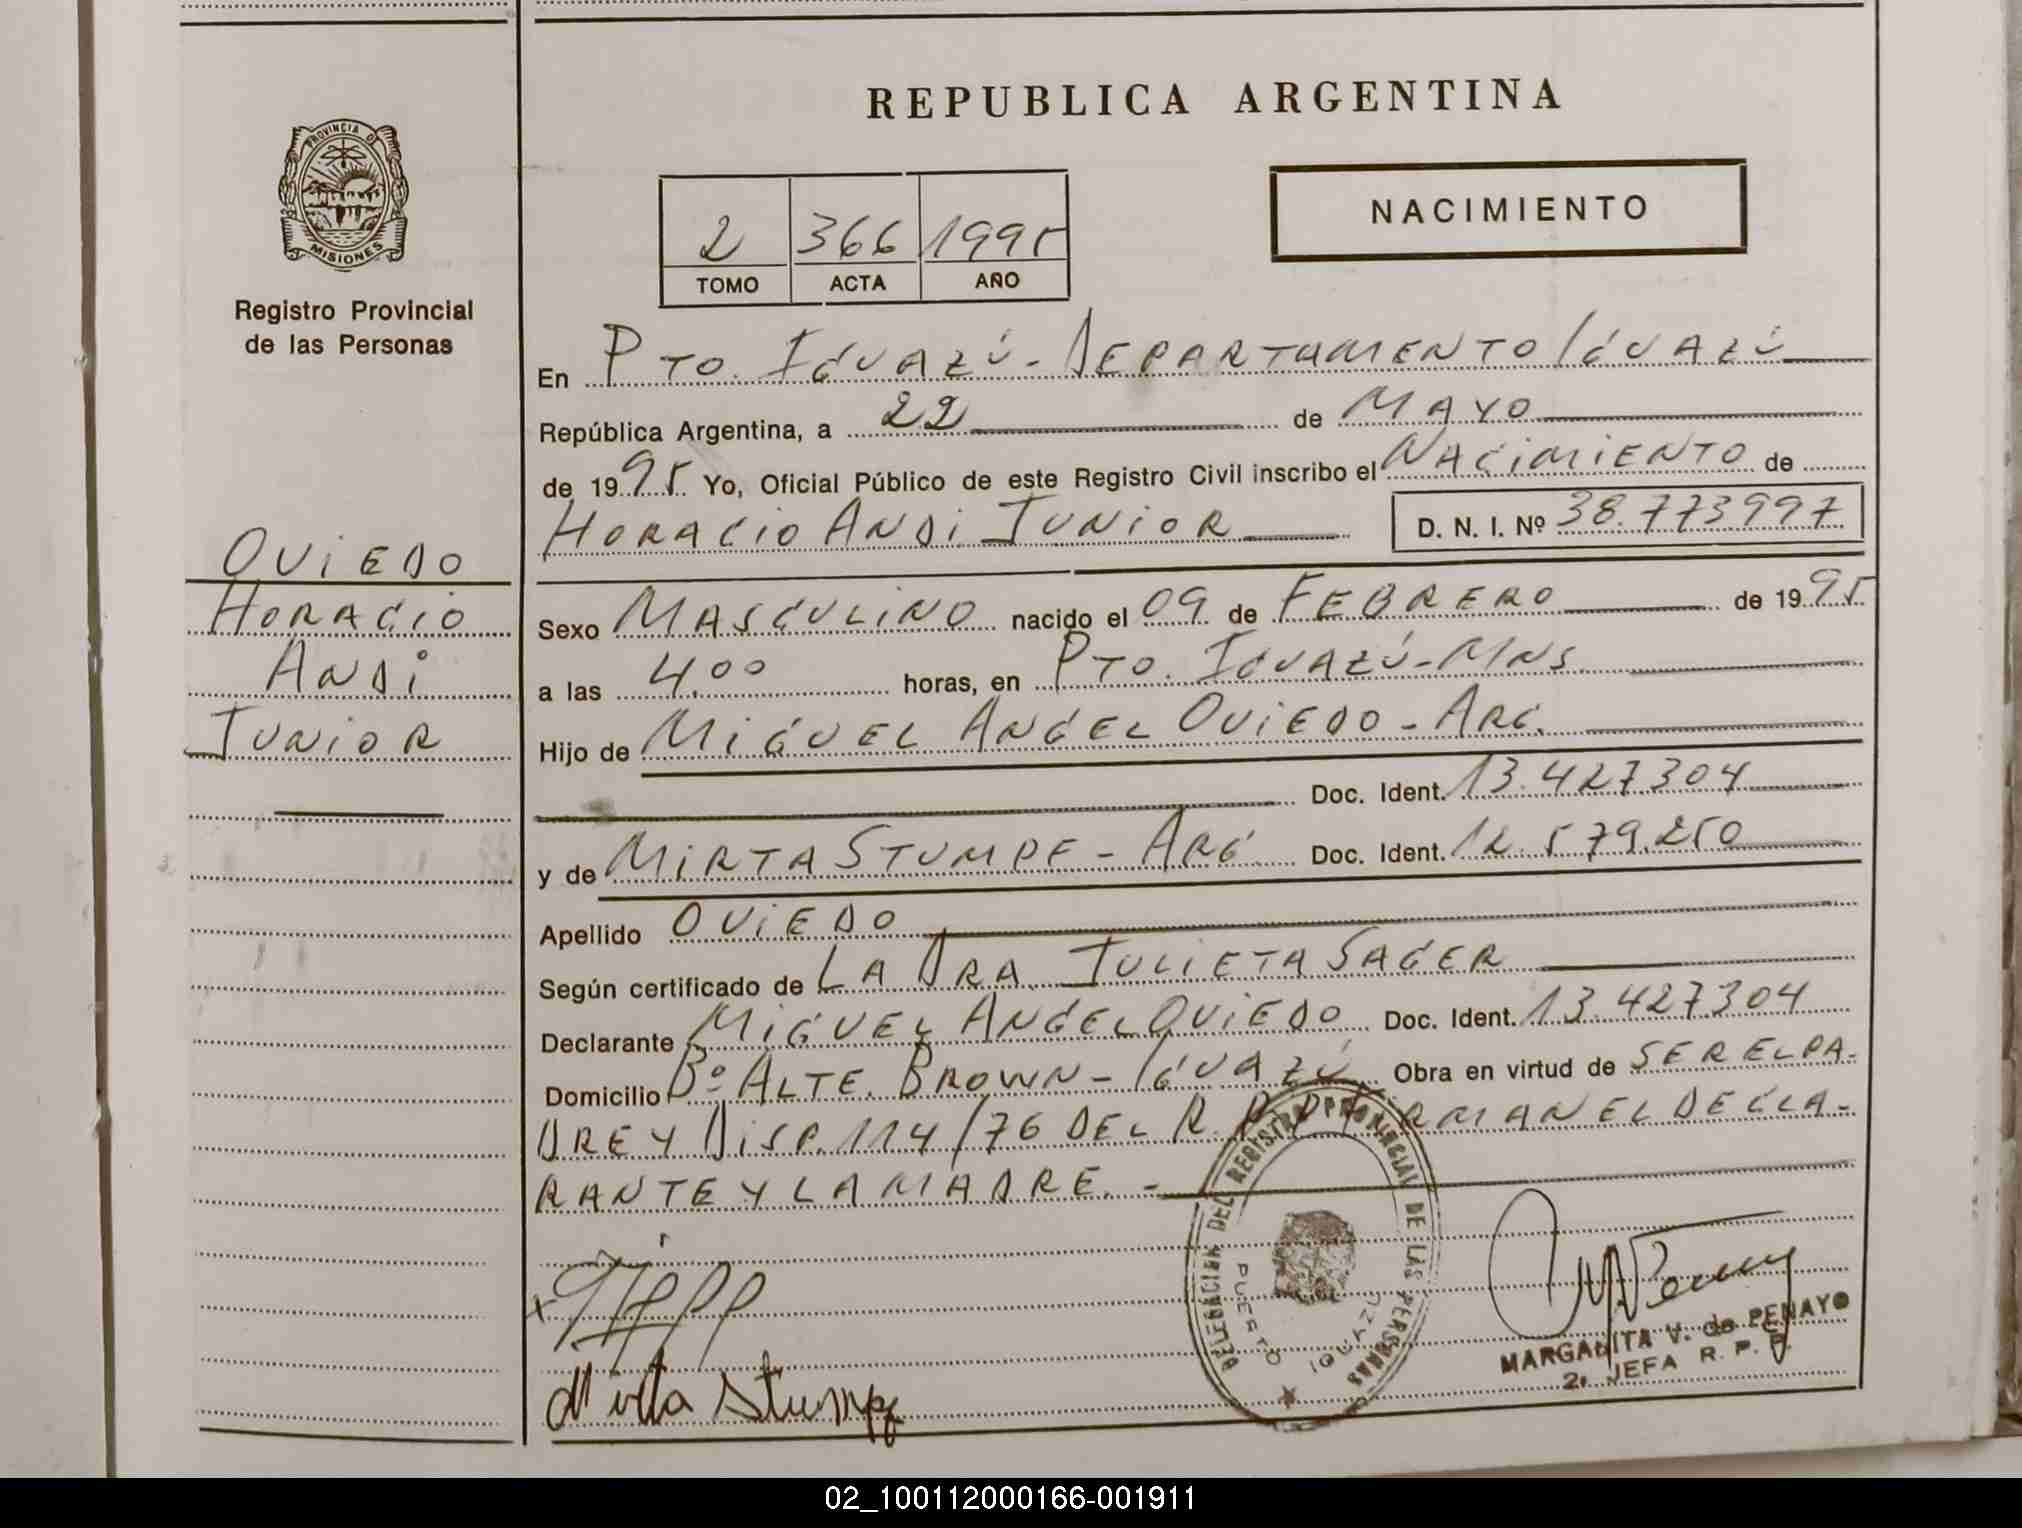 REPUBLICA ARGENTINA
PROVINCIA DE
MISIONES
Registro Provincial
de las Personas
NACIMIENTO
2 366 1995
TOMO ACTA AÑO
En PTO. IGUAZÚ - DEPARTAMENTO IGUAZÚ
República Argentina, a 22 de MAYO
de 1995 Yo, Oficial Público de este Registro Civil inscribo el NACIMIENTO de
HORACIO ANDI JUNIOR D. N. I. Nº 38.773997
OVIEDO
HORACIO
ANDI
JUNIOR
Sexo MASCULINO nacido el 09 de FEBRERO de 1995
a las 4.00 horas, en PTO. IGUAZÚ - MNS
Hijo de MIGUEL ANGEL OVIEDO - ARG.
Doc. Ident. 13.427304
y de MIRTA STUMPF - ARG Doc. Ident. 12.579.250
Apellido OVIEDO
Según certificado de LA DRA. JULIETA SAGER
Declarante MIGUEL ANGEL OVIEDO Doc. Ident. 13.427.304
Domicilio Bº ALTE. BROWN - IGUAZÚ Obra en virtud de SER EL PA-
DRE Y DISP. 114/76 DEL R.P.P. FIRMAN EL DECLA-
RANTE Y LA MADRE. -
DELEGACION DEL REGISTRO PROVINCIAL DE LAS PERSONAS
PUERTO IGUAZU
Mirta Stumpf
MARGARITA V. de PENAYO
2. JEFA R. P. P.
02_100112000166-001911